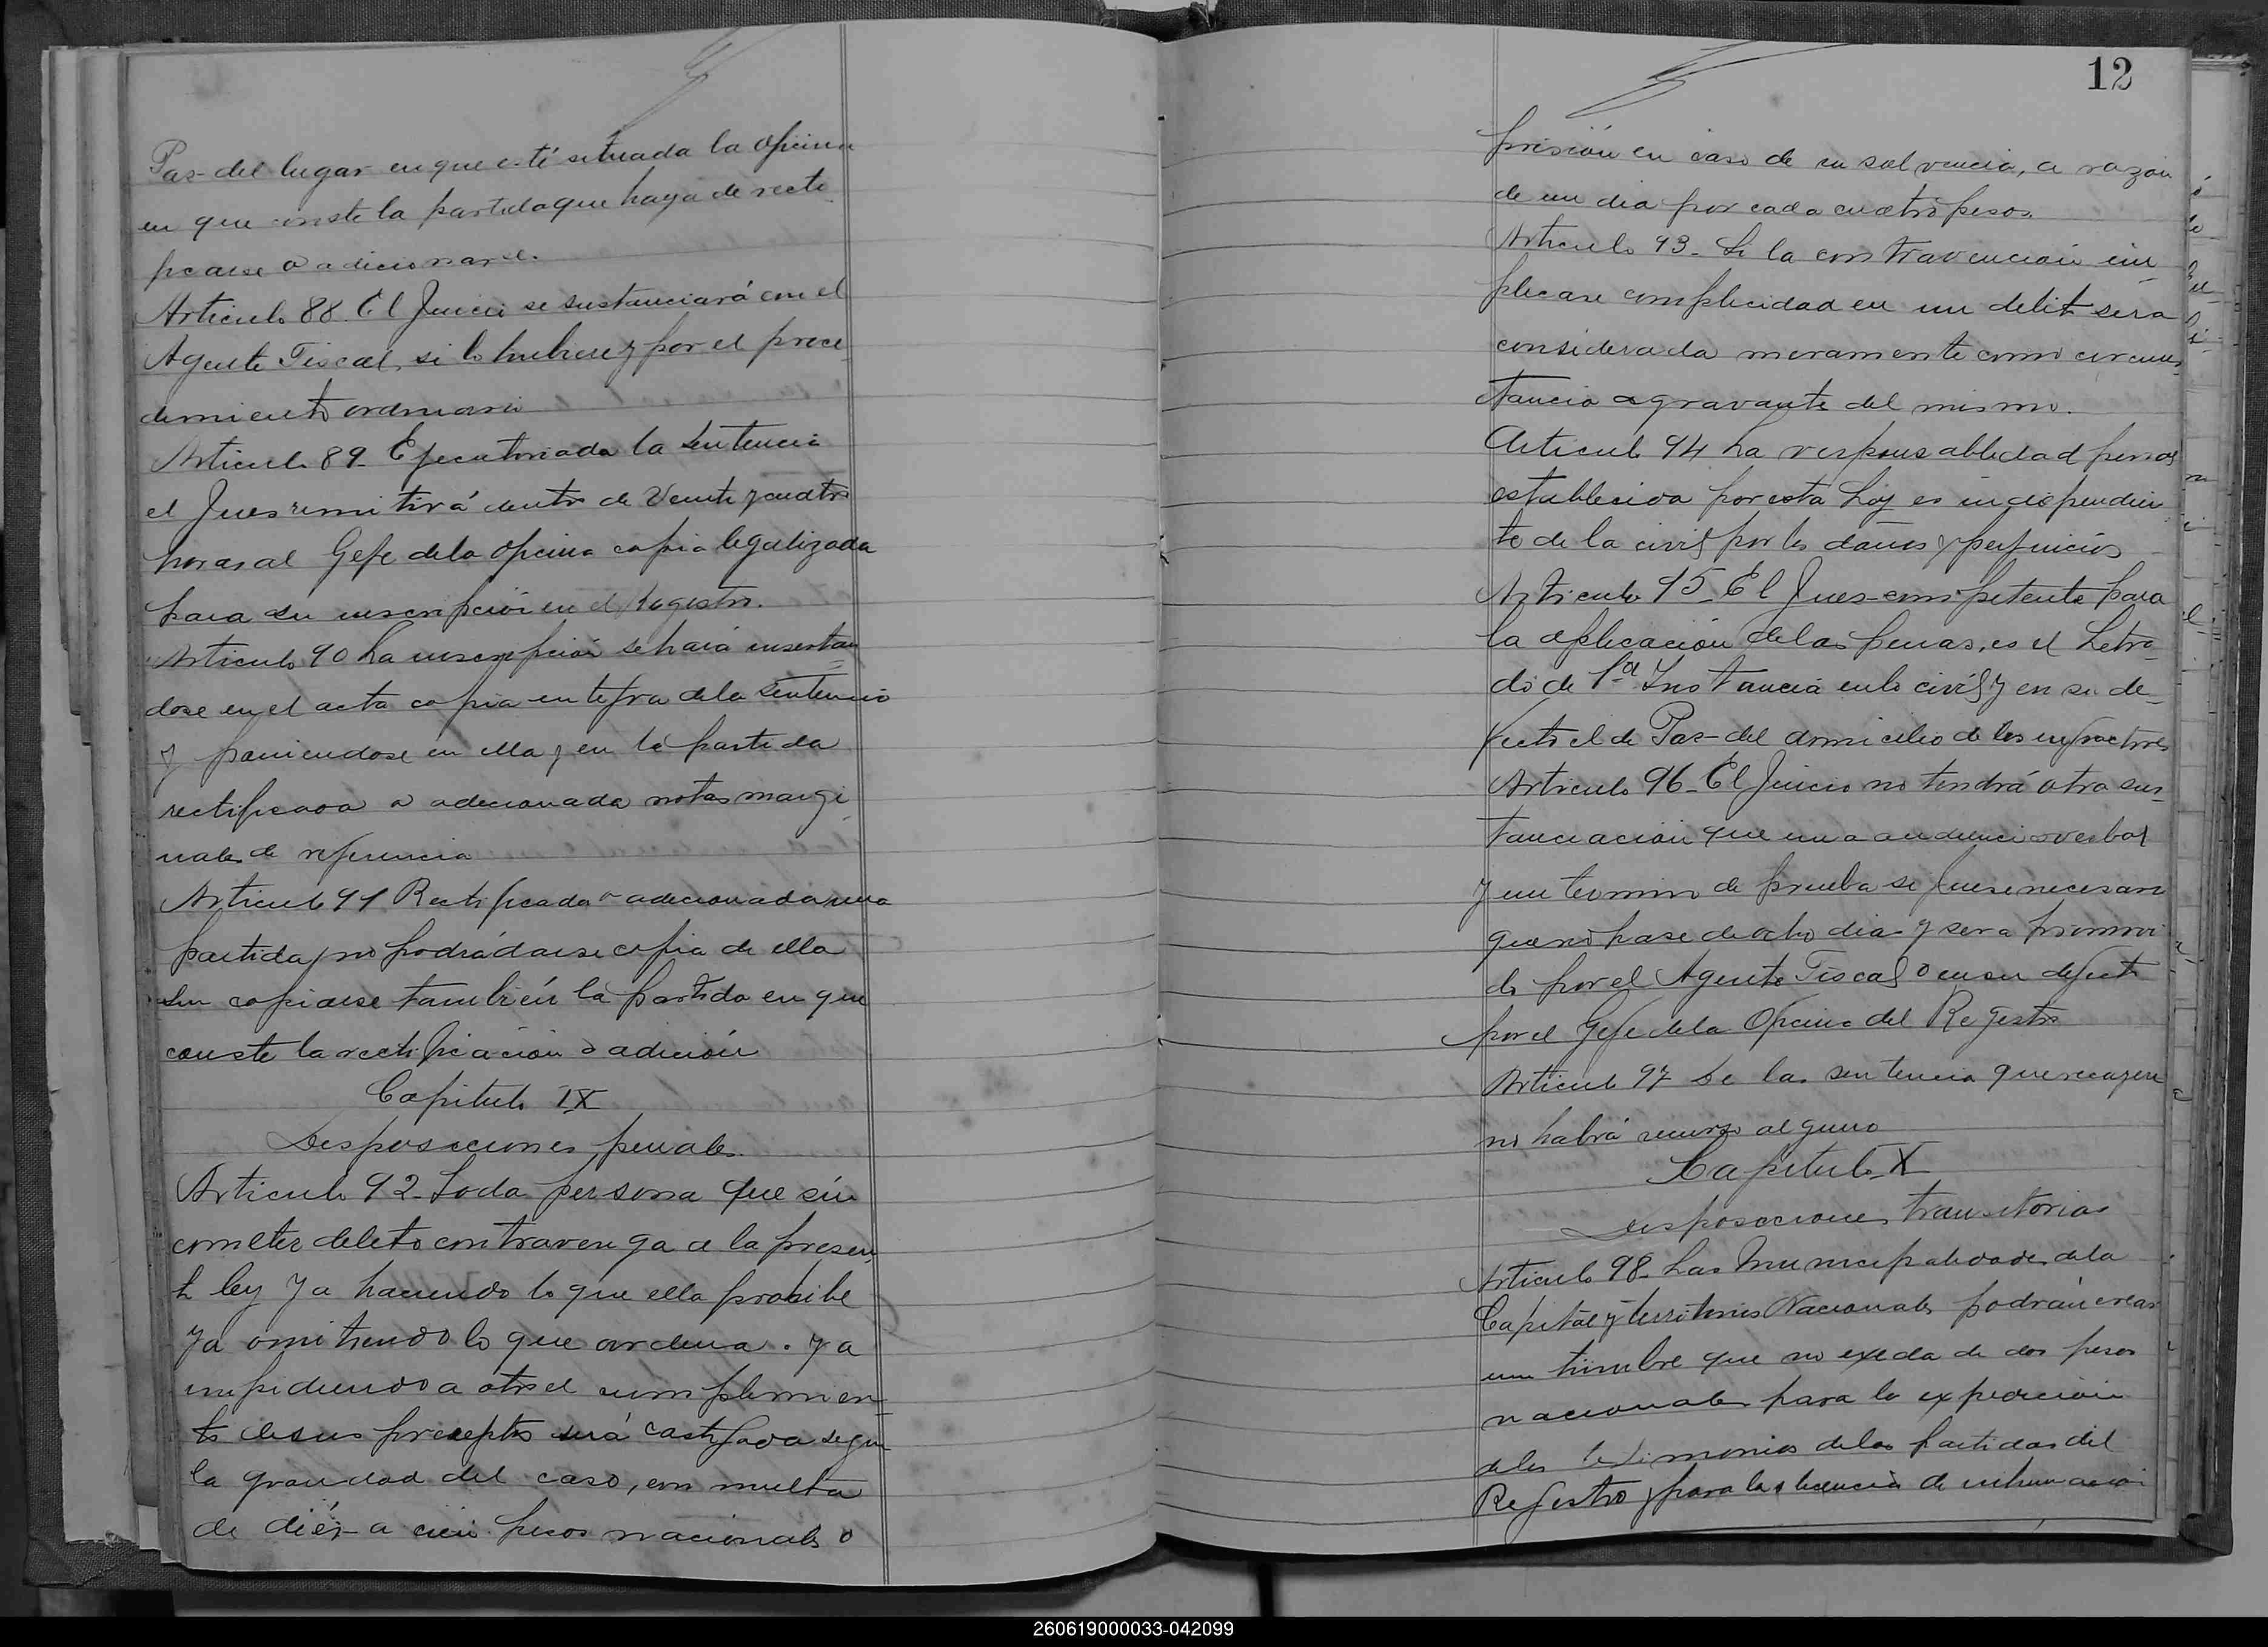 Pas del lugar en que esté situada la oficina
en que conste la partida que haya de recti
ficarse o adicionarse.
Articulo 88. El Juicio se sustanciará con el
Agente Fiscal, si lo hubiere y por el proce
dimiento ordinario
Articulo 89_ Ejecutoriada la Sentencia
el Jues remitirá dentro de Veinte y cuatro
horas al Gefe de la oficina copia legalizada
para su inscripción en el Registro.
Articulo 90 La inscripción se hará insertan
dose en el acta copia integra de la sentencia
y poniendose en ella y en la partida
rectificada o adicionada notas margi
nales de referencia
Articulo 91 Rectificada o adicionada una
partida, no podrá darse copia de ella
sin copiarse también la partida en que
conste la rectificación o adición
Capitulo IX
Disposiciones penales
Articulo 92_ Toda persona que sin
cometer delito contravenga a la presen
te ley ya haciendo lo que ella prohibe
ya omitiendo lo que ordena. ya
impidiendo a otro el cumplimien
to de sus preceptos será castigada segun
la gravedad del caso, con multa
de diés a cien pesos nacionales o
12
prisión en caso de insolvencia, a razón
de un dia por cada cuatro pesos.
Articulo 93_ Si la contravención im
plicase complicidad en un delito sera
considerada meramente como circuns
tancia agravante del mismo.
Articulo 94 La responsabilidad penal
establecida por esta Ley es independien
te de la civil por los daños y perjuicios
Articulo 95_ El Jues competente para
la aplicación de las penas, es el Letra
do de 1ª Instancia en lo civil y en su de
fecto el de Pas del domicilio de los infractores
Articulo 96_ El Juicio no tendrá otra sus
tanciación que una audiencia verbal
y un termino de prueba si fuese necesario
que no pase de ocho dias y sera promovi
do por el Agente Fiscal o en su defecto
por el Gefe de la Oficina del Registro
Articulo 97 De las sentencia que recayere
no habrá recurso alguno
Capitulo X
Disposiciones transitorias
Articulo 98_ Las Municipalidades de la
Capital y territorios Nacionales podrán crear
un timbre que no exeda de dos pesos
nacionales para la expedición
de los testimonios de las partidas del
Registro y para las licencia de inhumación
260619000033-042099